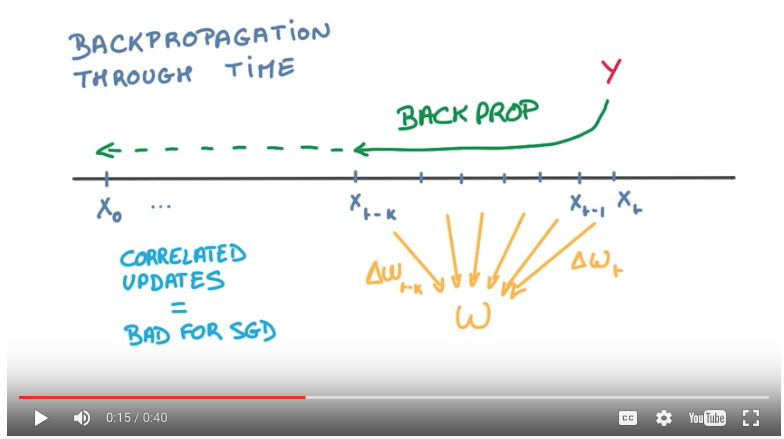 BACKPROPAGATION
THROUGH TIME
Y
BACKPROP
X₀ ... Xₜ₋ₖ Xₜ₋₁ Xₜ
CORRELATED
UPDATES
=
BAD FOR SGD
ΔWₜ₋ₖ ΔWₜ
W
0:15 / 0:40 CC YouTube